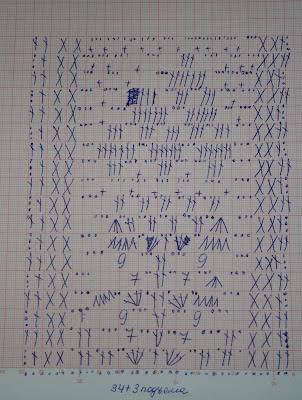 9 9
7 7
9 9
7 7
34+3 подъема